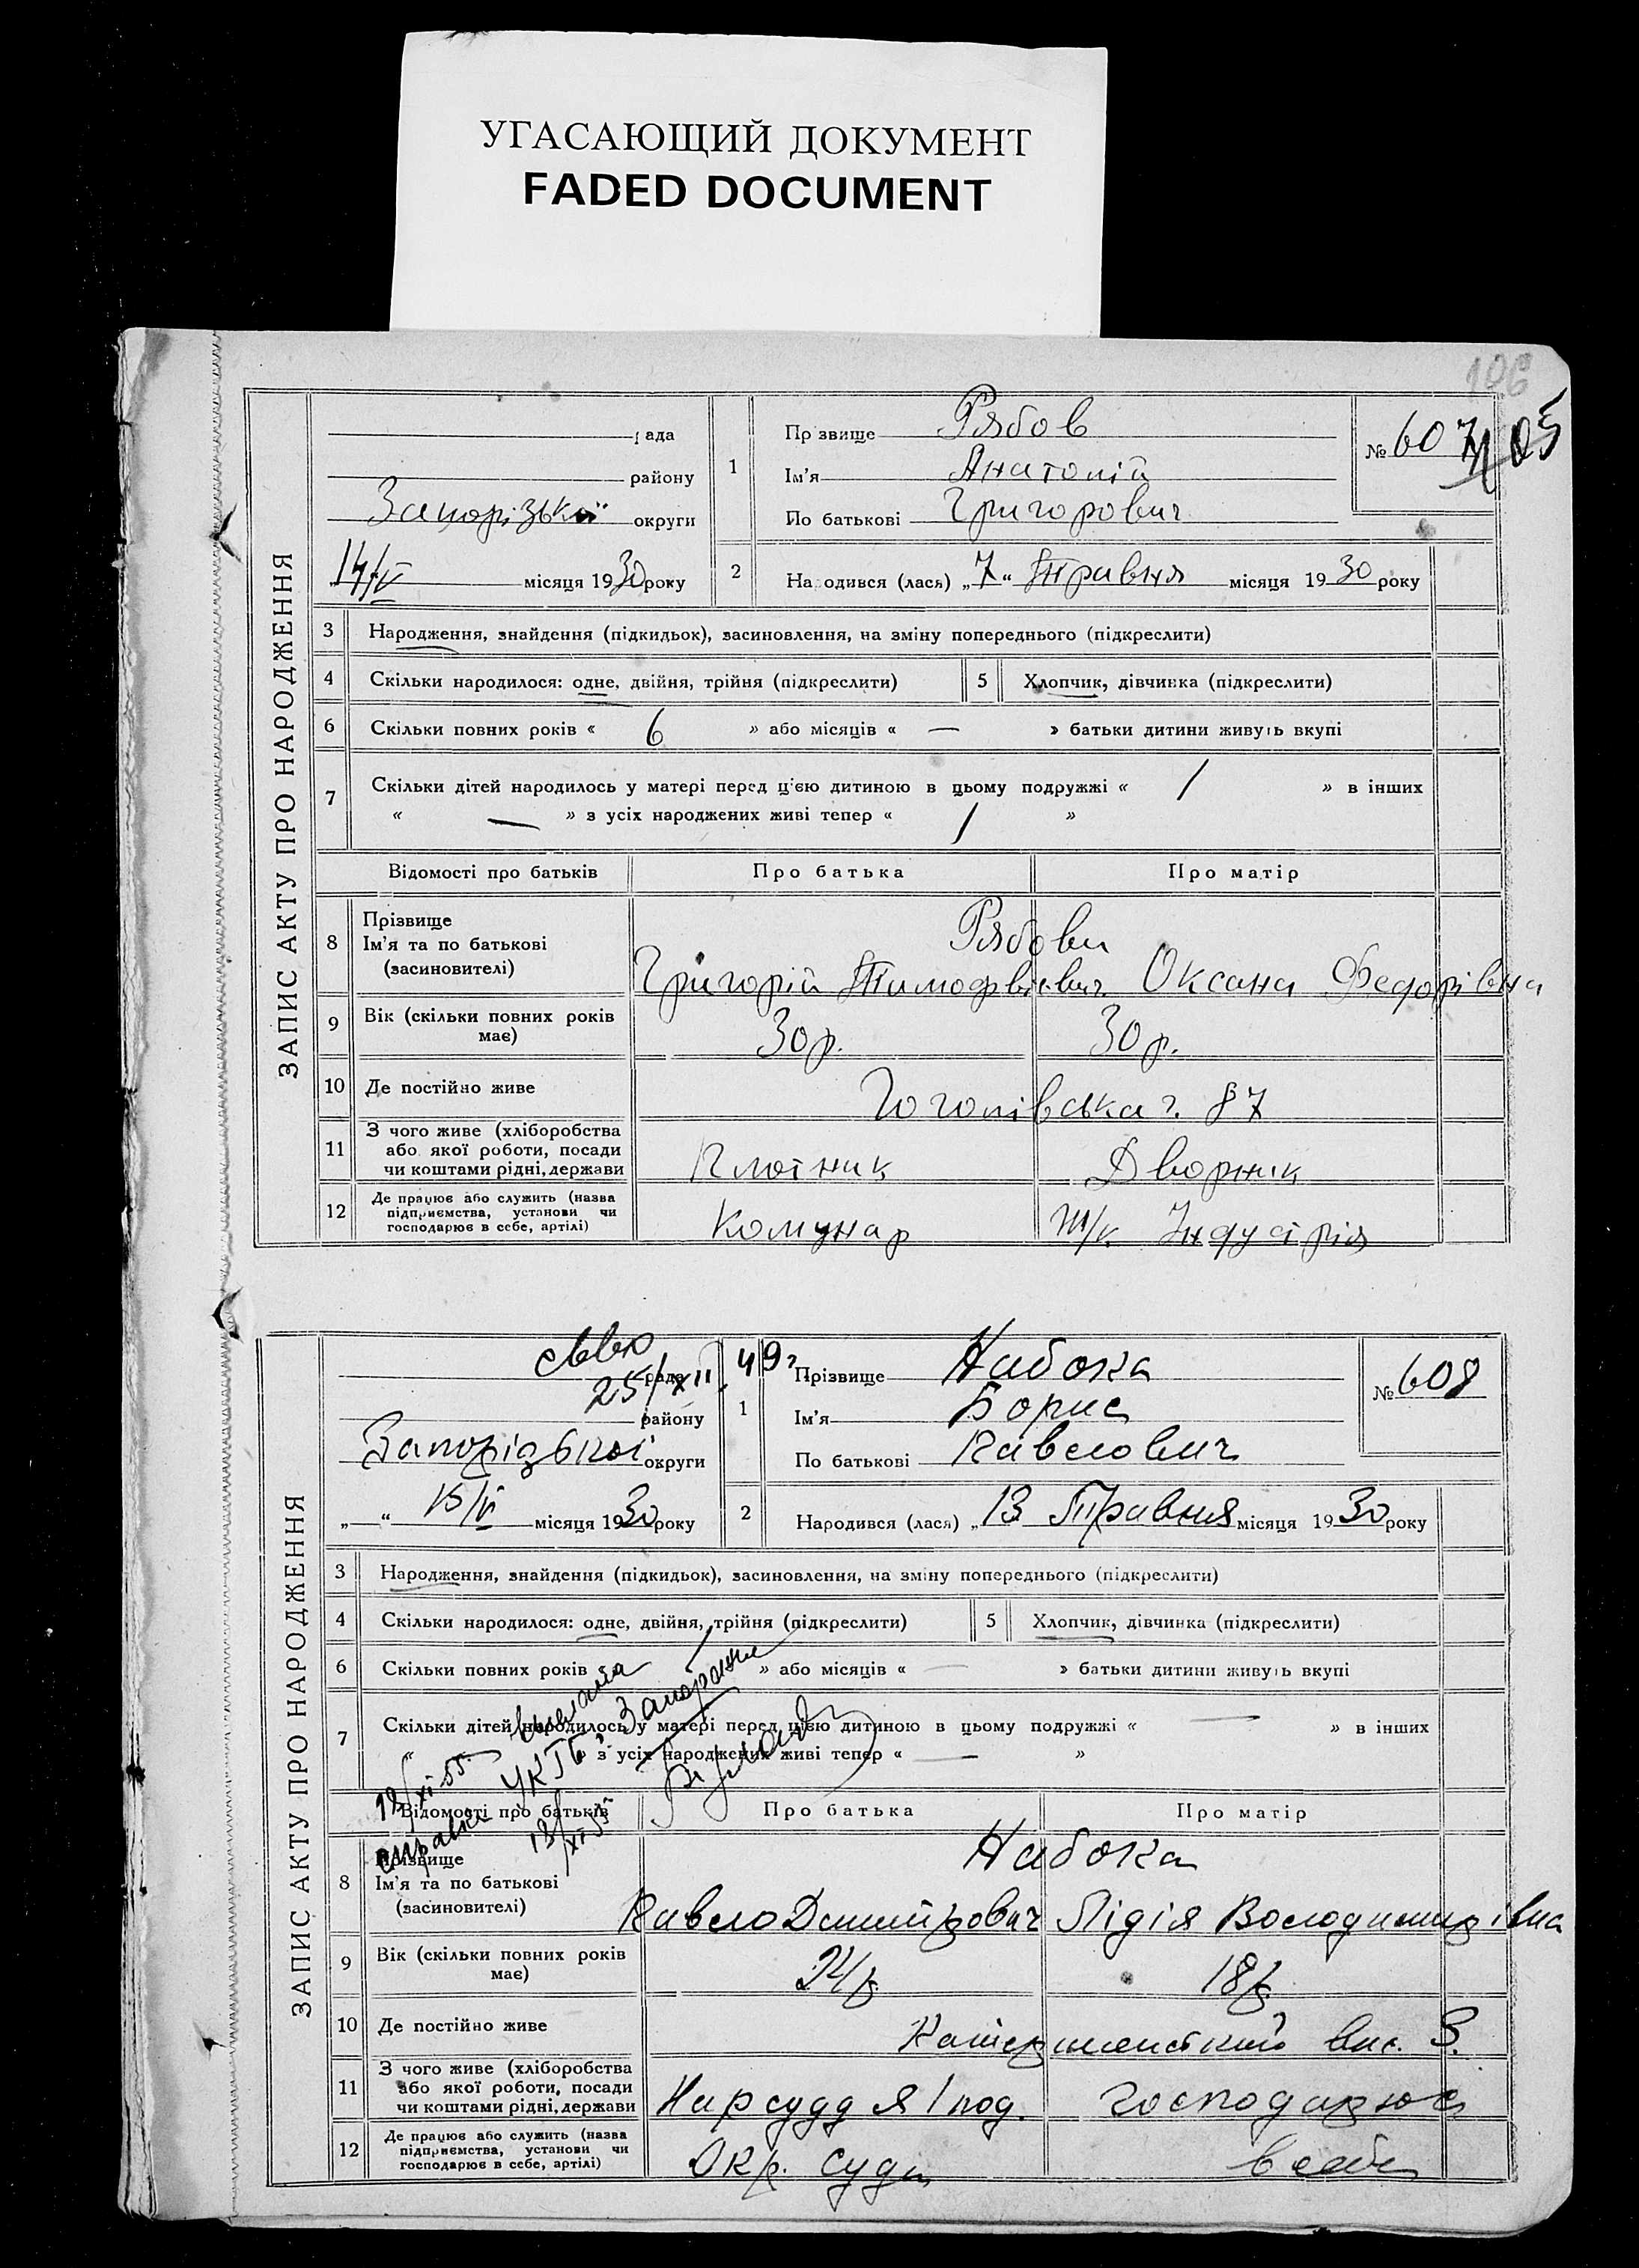 УГАСАЮЩИЙ ДОКУМЕНТ
FADED DOCUMENT
106
ЗАПИС АКТУ ПРО НАРОДЖЕННЯ
рада
району
Запорізької округи
14/V місяця 1930 року
1
Прізвище Рябов
Ім'я Анатолій
По батькові Григорович
№ 607
2 Народився (лася) „7“ Травня місяця 1930 року
3 Народження, знайдення (підкидьок), засиновлення, на зміну попереднього (підкреслити)
4 Скільки народилося: одне, двійня, трійня (підкреслити) 5 Хлопчик, дівчинка (підкреслити)
6 Скільки повних років « 6 » або місяців « — » батьки дитини живуть вкупі
7 Скільки дітей народилось у матері перед цією дитиною в цьому подружжі « 1 » в інших
« — » з усіх народжених живі тепер « 1 »
Відомості про батьків Про батька Про матір
8 Прізвище
Ім'я та по батькові
(засиновителі)
Рябови
Григорій Тимофієвич Оксана Федорівна
9 Вік (скільки повних років має) 30 р. 30 р.
10 Де постійно живе Гоголівська 87
11 З чого живе (хліборобства
або якої роботи, посади
чи коштами рідні, держави
Плотник Дворнік
12 Де працює або служить (назва
підприємства, установи чи
господарює в себе, артілі)
Комунар Ж/к Індустрія
ЗАПИС АКТУ ПРО НАРОДЖЕННЯ
рада
25/XII 49 г
району
Запорізької округи
„—“ 15/V місяця 1930 року
1
Прізвище Набока
Ім'я Борис
По батькові Павлович
№ 608
2 Народився (лася) „13 Травня місяця 1930 року
3 Народження, знайдення (підкидьок), засиновлення, на зміну попереднього (підкреслити)
4 Скільки народилося: одне, двійня, трійня (підкреслити) 5 Хлопчик, дівчинка (підкреслити)
6 Скільки повних років » або місяців « — » батьки дитини живуть вкупі
7 Скільки дітей народилось у матері перед цією дитиною в цьому подружжі « — » в інших
« » з усіх народжених живі тепер « — »
выслана
УКГБ Запорожье
Відомості про батьків Про батька Про матір
8 Прізвище
Ім'я та по батькові
(засиновителі)
Набока
Павло Дмитрович Лідія Володимирівна
9 Вік (скільки повних років має) 24 р. 18 р.
10 Де постійно живе вис. 3.
11 З чого живе (хліборобства
або якої роботи, посади
чи коштами рідні, держави
Нарсуддя Господарює
12 Де працює або служить (назва
підприємства, установи чи
господарює в себе, артілі)
Окр. Суд в себе